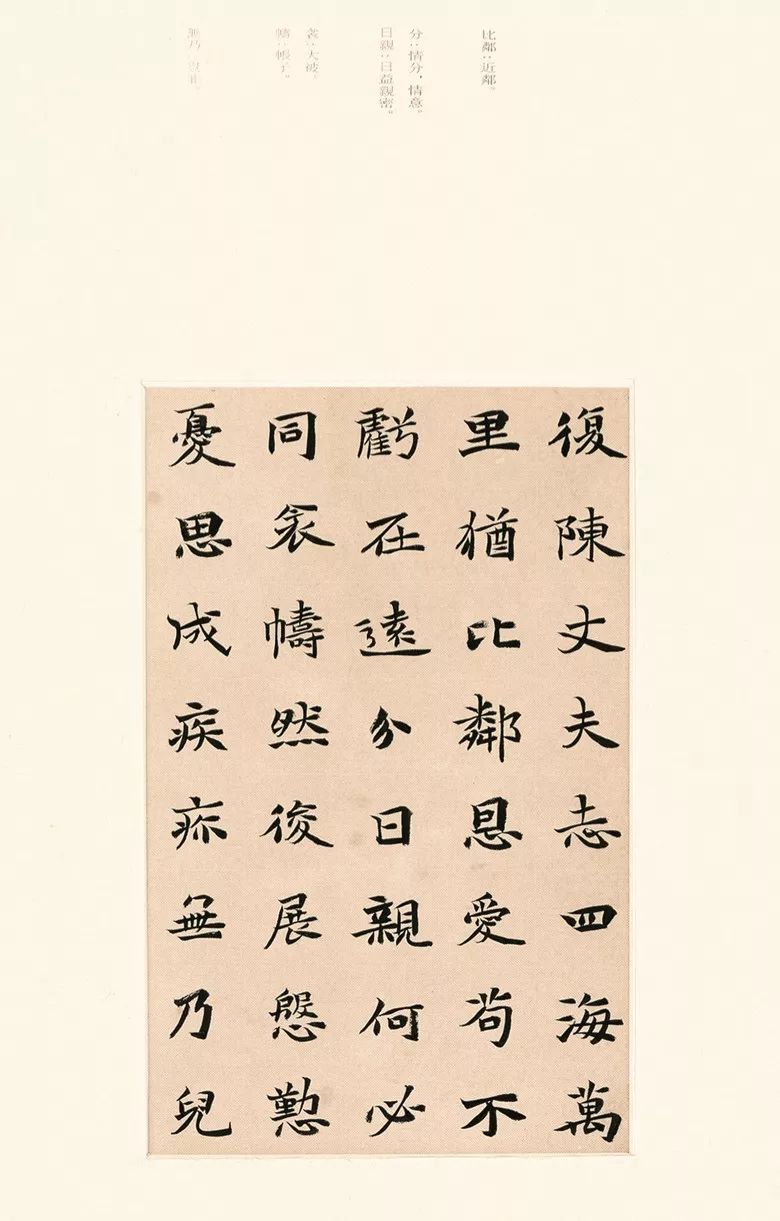 比鄰：近鄰。
分：情分，情意。
日親：日益親密。
衾：大被。
幬：帳子。
無乃：豈非。
復陳丈夫志四海萬
里猶比鄰恩愛苟不
虧在遠分日親何必
同衾幬然後展慇懃
憂思成疾疹無乃兒